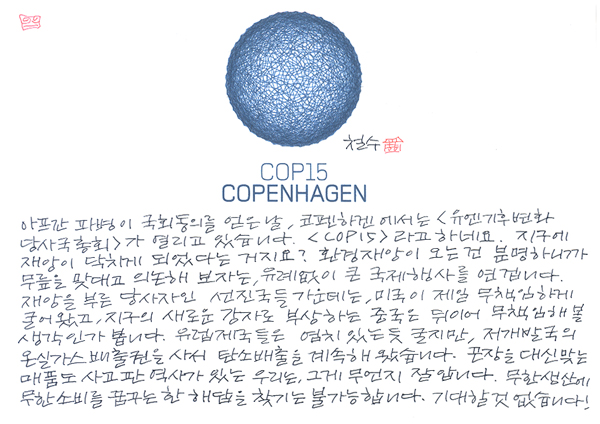 철수
COP15
COPENHAGEN
아프간 파병이 국회동의를 얻은 날, 코펜하겐에서는 <유엔기후변화
당사국총회>가 열리고 있습니다. <COP15>라고 하네요. 지구에
재앙이 닥치게 되었다는 거지요? 환경재앙이 오는건 분명하니까
무릎을 맞대고 의논해 보자는, 유례없이 큰 국제행사를 연겁니다.
재앙을 부른 당사자인 선진국들 가운데는, 미국이 제일 무책임하게
굴어 왔고, 지구의 새로운 강자로 부상하는 중국은 뒤이어 무책임해 볼
생각인가 봅니다. 유럽제국들은 염치 있는듯 굴지만, 저개발국의
온실가스배출권을 사서 탄소배출을 계속해 왔습니다. 곤장을 대신맞는
매품도 사고 판 역사가 있는 우리는, 그게 무언지 잘 압니다. 무한생산에
무한소비를 꿈꾸는 한 해답을 찾기는 불가능합니다. 기대할것 없습니다!